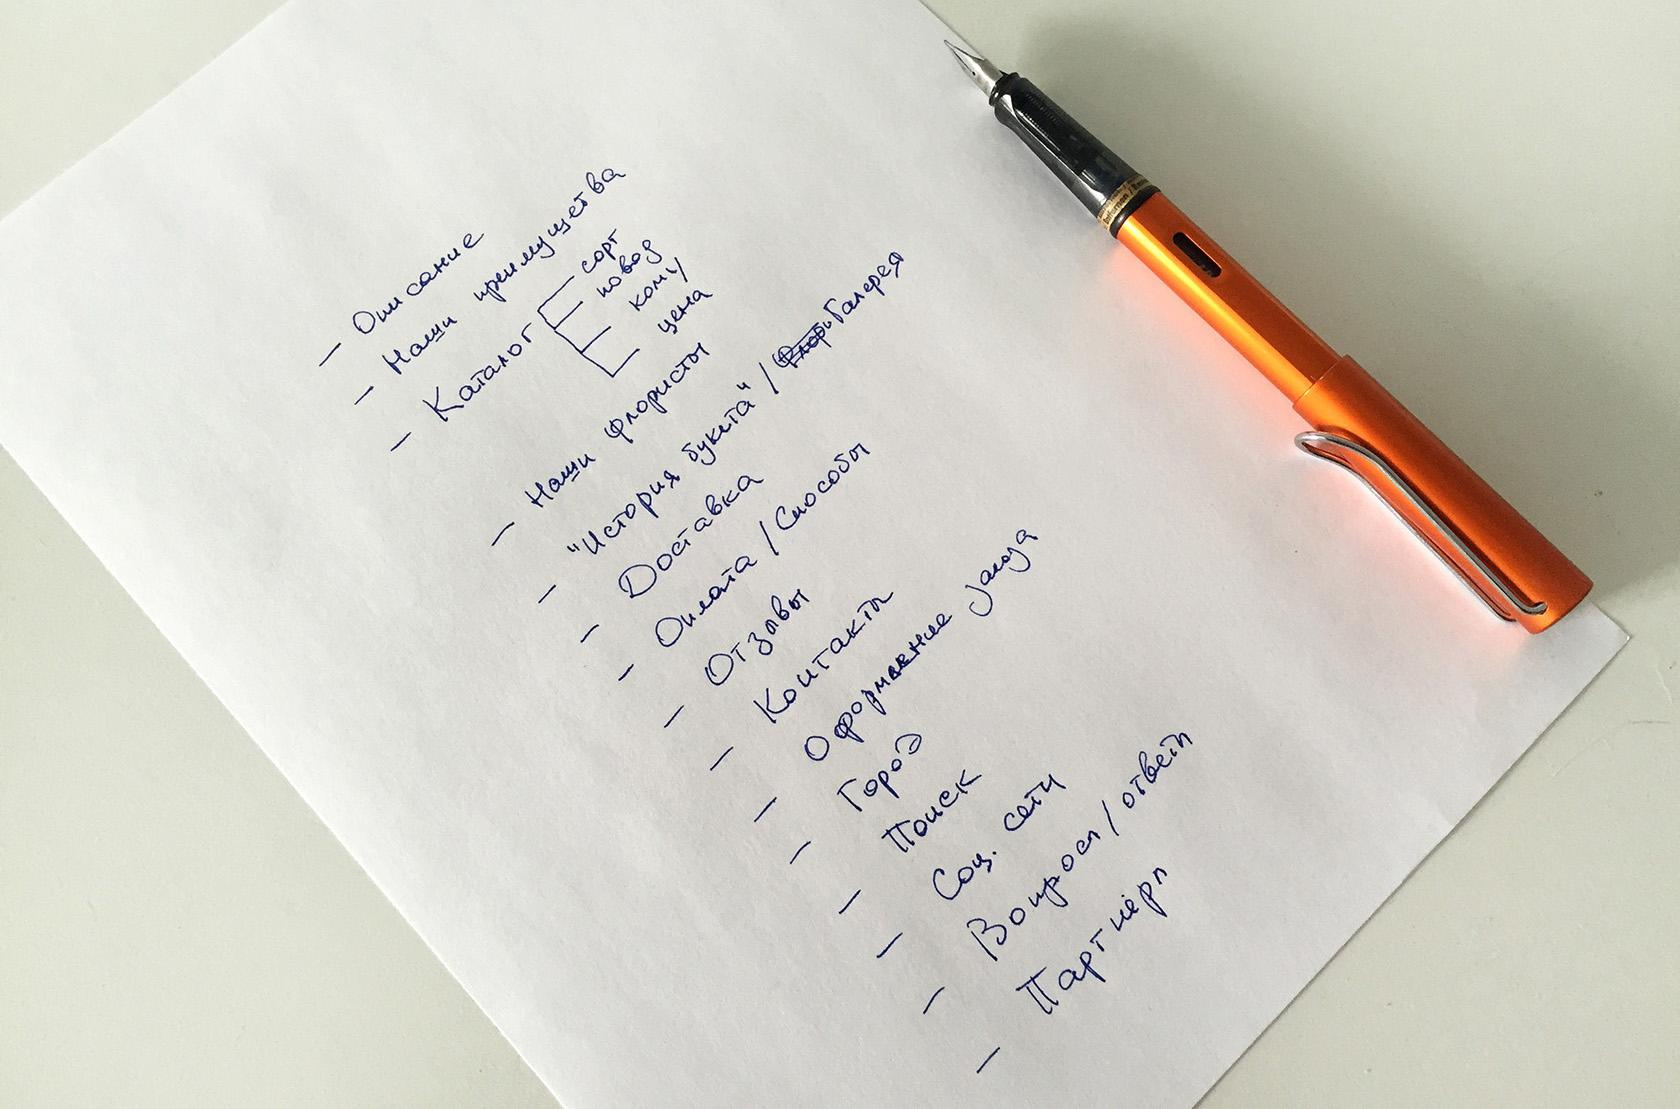 — Описание
— Наши преимущества
— Каталог
сорт
повод
кому
цена
— Наши флористы
— "История букета" / Галерея
— Доставка
— Оплата / Способы
— Отзывы
— Контакты
— Оформление
— Город
— Поиск
— Соц. сети
— Вопросы / ответы
— Партнёры